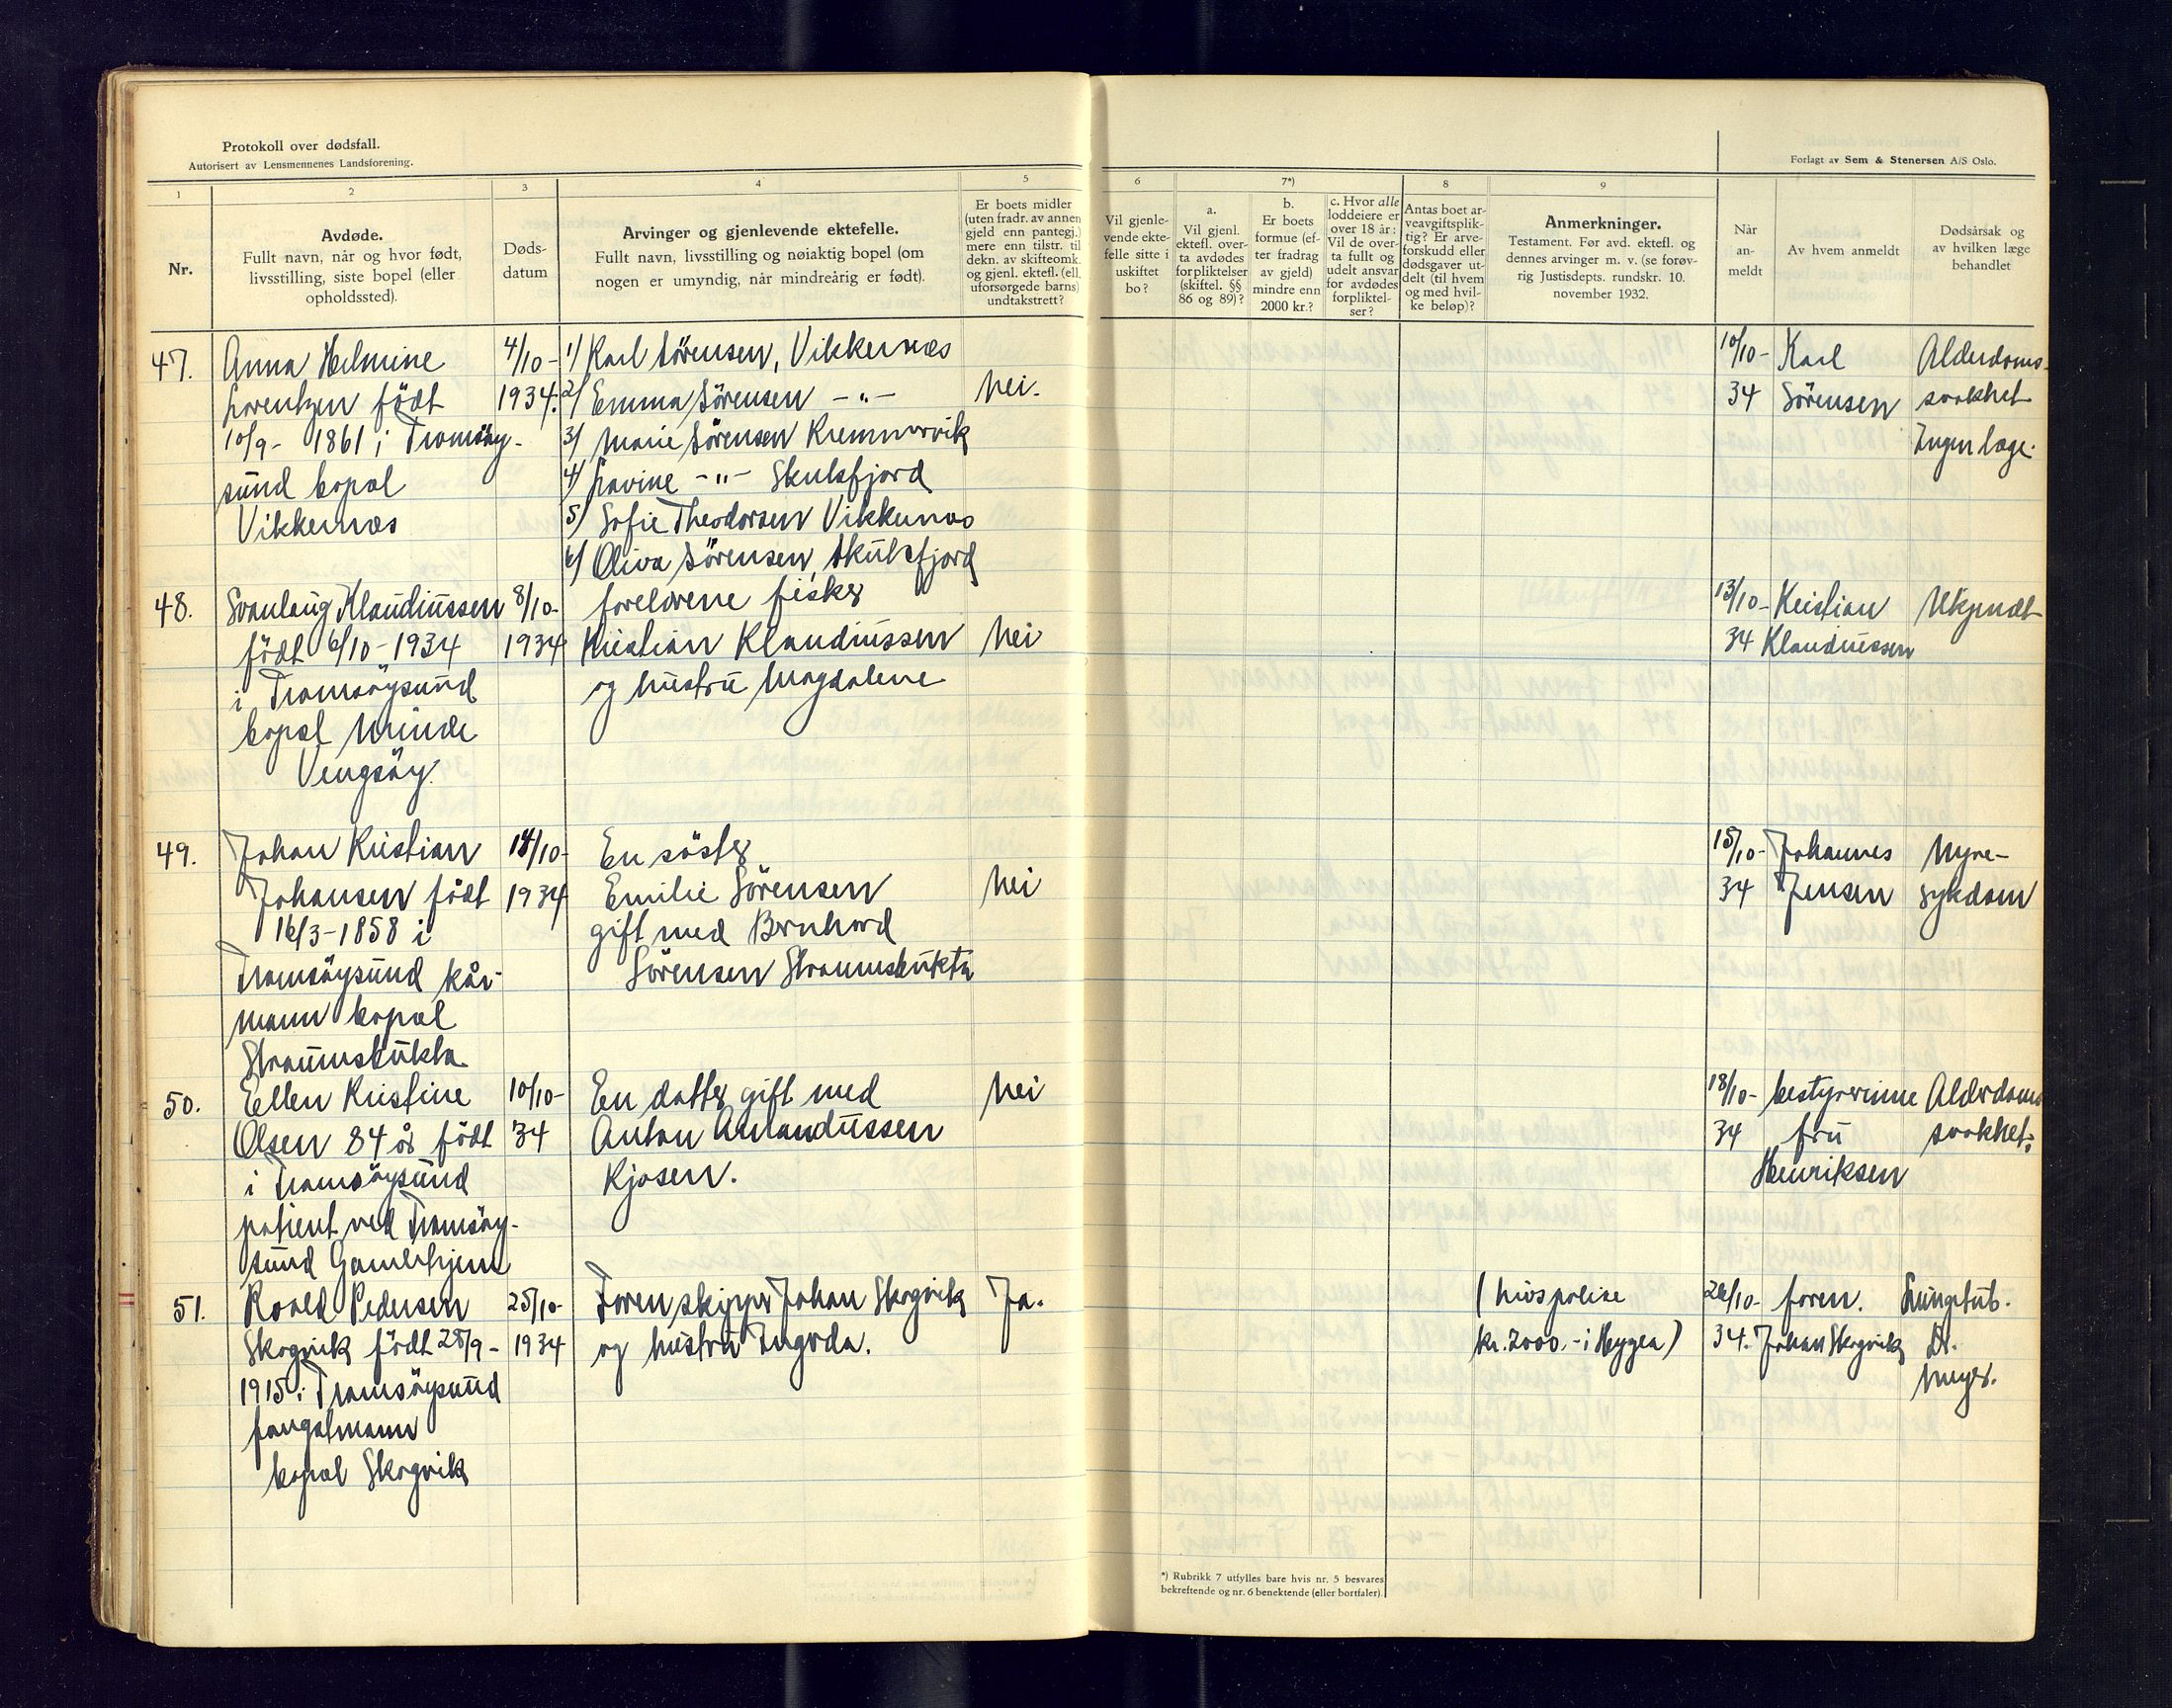 Protokoll over dødsfall.
Autorisert av Lensmennenes Landsforening.
Forlagt av Sem & Stenersen A/S Oslo.
1
2
3
4
5
6
7*)
8
9
Nr.
Avdøde.
Fullt navn, når og hvor født,
livsstilling, siste bopel (eller
opholdssted).
Døds-
datum
Arvinger og gjenlevende ektefelle.
Fullt navn, livsstilling og nøiaktig bopel (om
nogen er umyndig, når mindreårig er født).
Er boets midler
(uten fradr. av annen
gjeld enn pantegj.)
mere enn tilstr. til
dekn. av skifteomk.
og gjenl. ektefl. (ell.
uforsørgede barns)
undtakstrett?
Vil gjenle-
vende ekte-
felle sitte i
uskiftet
bo?
a.
Vil gjenl.
ektefl. over-
ta avdødes
forpliktelser
(skiftel. §§
86 og 89)?
b.
Er boets
formue (ef-
ter fradrag
av gjeld)
mindre enn
2000 kr.?
c. Hvor alle
loddeiere er
over 18 år:
Vil de over-
ta fullt og
udelt ansvar
for avdødes
forpliktel-
ser?
Antas boet ar-
veavgiftsplik-
tig? Er arve-
forskudd eller
dødsgaver ut-
delt (til hvem
og med hvil-
ke beløp)?
Anmerkninger.
Testament. Før avd. ektefl. og
dennes arvinger m. v. (se forøv-
rig Justisdepts. rundskr. 10.
november 1932.
Når
an-
meldt
Av hvem anmeldt
Dødsårsak og
av hvilken læge
behandlet
47.
Anna Helmine
Lorentzen födt
10/9- 1861 i Tromsöy-
sund bopæl
Vikkernæs
4/10-
1934.
1/ Karl Sörensen, Vikkernæs
2/ Emma Sörensen -"-
3/ Marie Sörensen Kremmervik
4/ Lovine -"- Skulsfjord
5/ Sofie Theodorsen Vikkernæs
6/ Oliva Sörensen, Skulsfjord
Nei.
10/10-
34
Karl
Sörensen
Alderdoms-
svakhet
Ingen læge.
48.
Svanlaug Klaudiussen
födt 6/10-1934
i Tromsöysund
bopæl Minde
Vengsöy.
8/10-
1934
foreldrene fisker
Kristian Klaudiussen
og hustru Magdalene
Nei
13/10-
34
Kristian
Klaudiussen
Ukjendt
49.
Johan Kristian
Johansen födt
16/3-1858 i
Tromsöysund kår-
mann bopæl
Straumsbukta
14/10-
1934
En söster
Emilie Sörensen
gift med Bernhard
Sörensen Straumsbukta
Nei
15/10-
34
Johannes
Jensen
Nyre-
sykdom
50.
Ellen Kristine
Olsen 84 år födt
i Tromsöysund
patient ved Tromsöy-
sund Gamlehjem
10/10-
34
En datter gift med
Anton Amandussen
Kjosen.
Nei
18/10-
34
bestyrerinne
fru
Henriksen
Alderdoms
svakhet.
51.
Roald Pedersen
Skogvik födt 25/9-
1915 i Tromsöysund
fangstmann
bopæl Skogvik
25/10-
1934
Foren skipper Johan Skogvik
og hustru Ingvda.
Ja.
( livspolise
kr. 2000.- i Hygea)
26/10-
34.
foren.
Johan Skogvik
Lungetub.
Dr.
Meyer.
*) Rubrikk 7 utfylles bare hvis nr. 5 besvares
bekreftende og nr. 6 benektende (eller bortfaler).